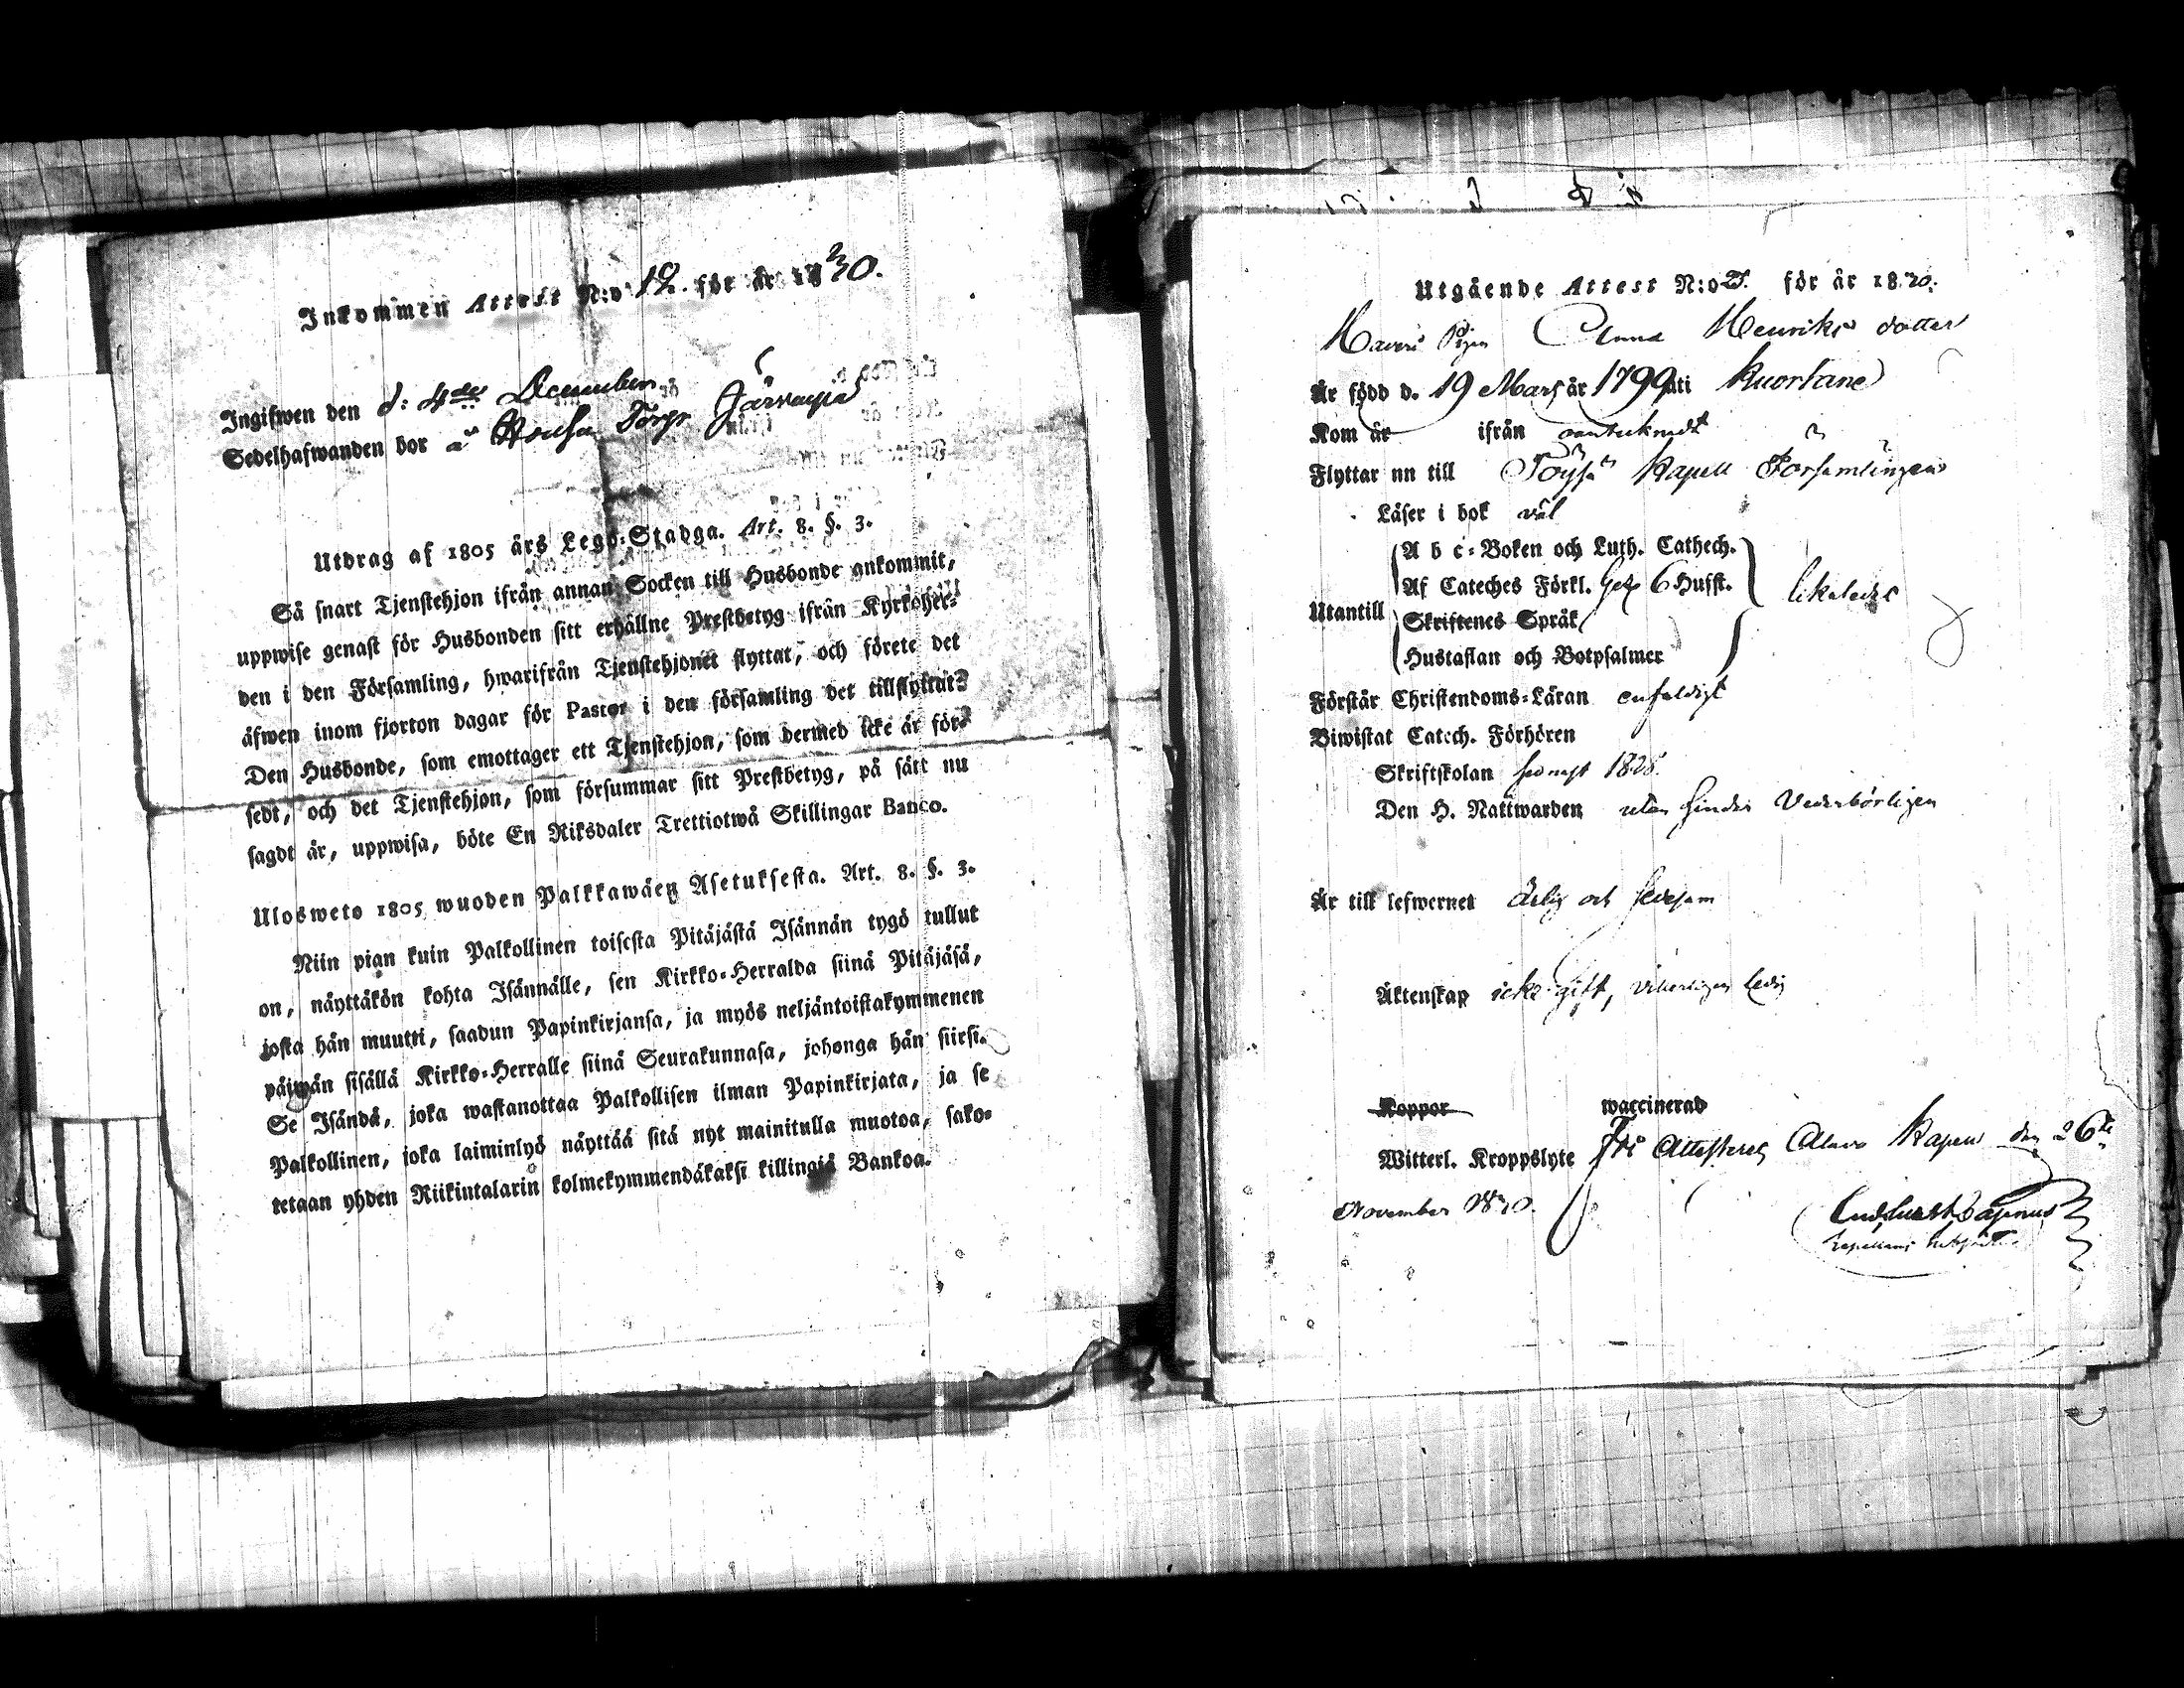 Inkommen Attest N:o 19. för år 1830.
Ingifwen den d: 4de December
Sedelhafwanden bor å Torp Järvenpää
Utdrag af 1805 års Lego-Stadga. Art. 8. §. 3.
Så snart Tjenstehjon ifrån annan Socken till Husbonde ankommit,
uppwise genast för Husbonden sitt erhållne Prestbetyg ifrån Kyrkoher-
den i den Församling, hwarifrån Tjenstehjonet flyttat, och förete det
äfwen inom fjorton dagar för Pastor i den församling det tillflyttat.
Den Husbonde, som emottager ett Tjenstehjon, som dermed icke är för-
sedt, och det Tjenstehjon, som försummar sitt Prestbetyg, på sätt nu
sagdt är, uppwisa, böte En Riksdaler Trettiotwå Skillingar Banco.
Ulosweto 1805 wuoden Palkkawäen Asetuksesta. Art. 8. §. 3.
Niin pian kuin Palkollinen toisesta Pitäjästä Isännän tygö tullut
on, näyttäkön kohta Isännälle, sen Kirkko-Herralda siinä Pitäjäsä,
josta hän muutti, saadun Papinkirjansa, ja myös neljäntoistakymmenen
päiwän sisällä Kirkko-Herralle siinä Seurakunnasa, johonga hän siirsi.
Se Isändä, joka wastanottaa Palkollisen ilman Papinkirjata, ja se
Palkollinen, joka laiminlyö näyttää sitä nyt mainitulla muotoa, sako-
tetaan yhden Riikintalarin kolmekymmendäkaksi killingiä Bankoa.
Utgående Attest N:o för år 1830.
Pigan Anna Henriks dotter
Är född d. 19 Mars år 1799 uti Kuortane
Kom år ifrån
Flyttar nu till Töysä Kapell Församlingen
Läser i bok väl
A b c-Boken och Luth. Cathech.
Af Cateches Förkl. 6 Hufst.
likaledes
Utantill
Skriftenes Språk
Hustaflan och Botpsalmer
Förstår Christendoms-Läran enfaldigt
Biwistat Catech. Förhören
Skriftskolan sednast 1828.
Den H. Nattwarden utan hinder Vederbörligen
Är till lefwernet ärlig och
Äktenskap icke gift, ledig
Koppor waccinerad
Witterl. Kroppslyte fri Attesterar Alavo Kapell den 26te
November 1830.